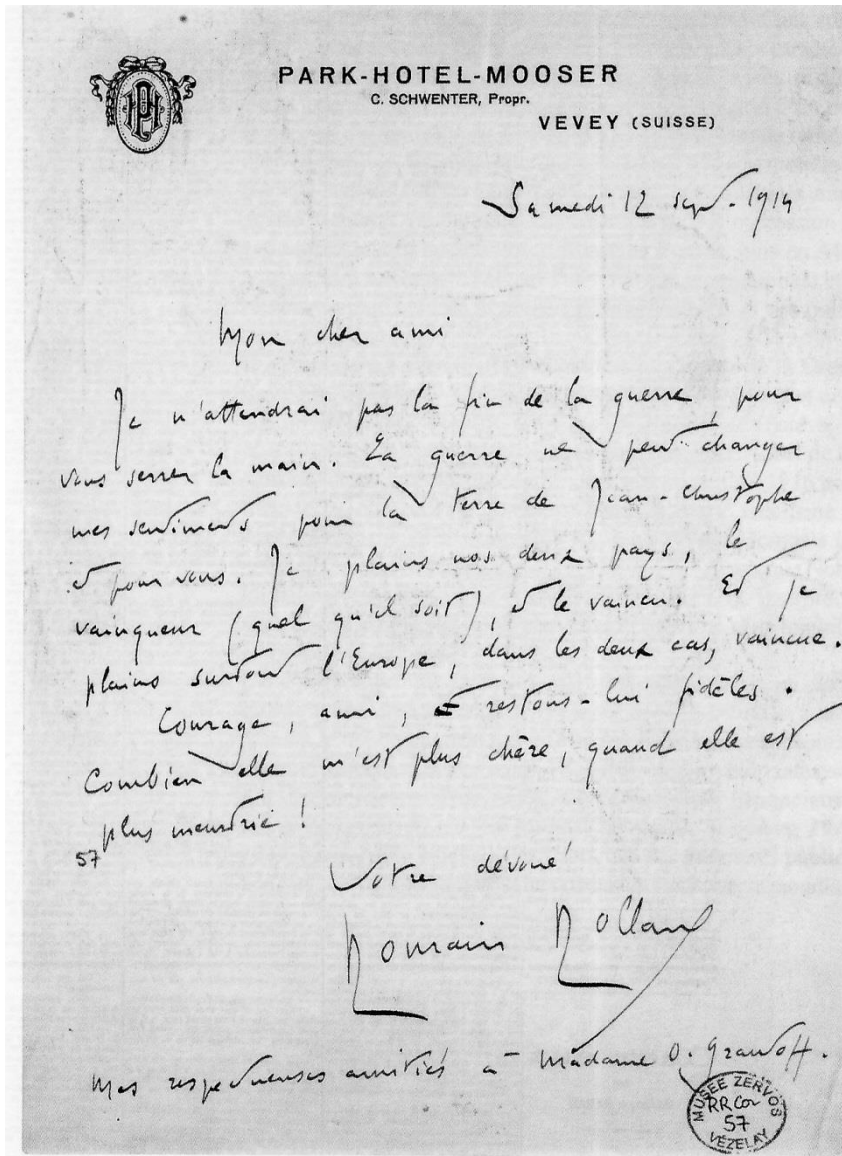 PARK-HOTEL-MOOSER
C. SCHWENTER, Propr.
VEVEY (SUISSE)
Samedi 12 sept. 1914
Mon cher ami
Je n'attendrai pas la fin de la guerre, pour
vous serrer la main. La guerre ne peut changer
mes sentiments pour la terre de Jean-Christophe
et pour vous. Je plains nos deux pays, le
vainqueur (quel qu'il soit), et le vaincu. Et je
plains surtout l'Europe, dans les deux cas, vaincue.
Courage, ami, et restons-lui fidèles.
Combien elle m'est plus chère, quand elle est
plus meurtrie !
57
Votre dévoué
Romain Rolland
Mes respectueuses amitiés à Madame O. Grautoff.
MUSÉE ZERVOS
RR Cor
57
VÉZELAY